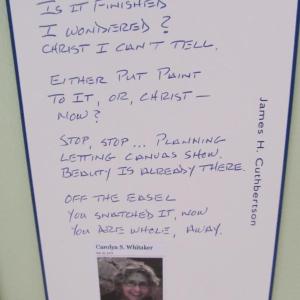 IS IT FINISHED
I WONDERED?
CHRIST I CAN'T TELL.
EITHER PUT PAINT
TO IT, OR, CHRIST —
NOW?
STOP, STOP... PLANNING
LETTING CANVAS SHOW.
BEAUTY IS ALREADY THERE.
OFF THE EASEL
YOU SNATCHED IT, NOW
YOU ARE WHOLE, AWAY.
James H. Cuthbertson
Carolyn S. Whitaker